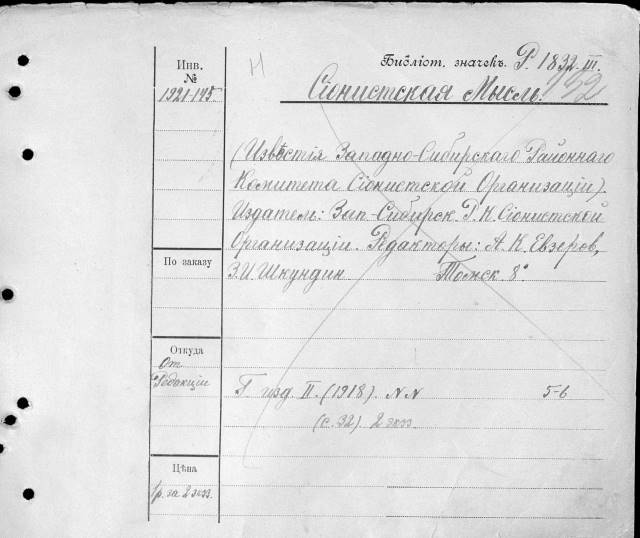 Инв.
№
1921-145.
Н
Библіот. значекъ. Р. 1832. III.
132
Сіонистская Мысль.
(Извѣстія Западно-Сибирскаго Районнаго
Комитета Сіонистской Организаціи).
Издатель: Зап.-Сибирск. Р. К. Сіонистской
Организаціи. Редакторы: А. К. Евзеров,
З. И. Шкундин Томск 8°
По заказу
Откуда
От
Редакціи
Г. изд. II. (1918). NN 5-6
(с. 32). 2 экз
Цѣна
1р. за 2 экз.